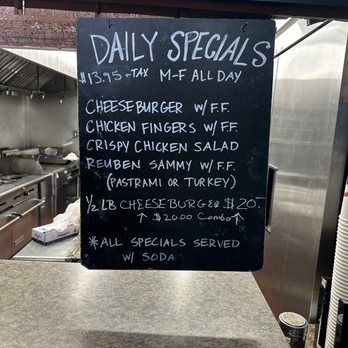 DAILY SPECIALS
$13.95 + TAX M-F ALL DAY
CHEESEBURGER W/ F.F.
CHICKEN FINGERS W/ F.F.
CRISPY CHICKEN SALAD
REUBEN SAMMY W/ F.F.
(PASTRAMI OR TURKEY)
1/2 LB CHEESEBURGER $20.-
↑ $20.00 Combo ↑
*ALL SPECIALS SERVED
W/ SODA